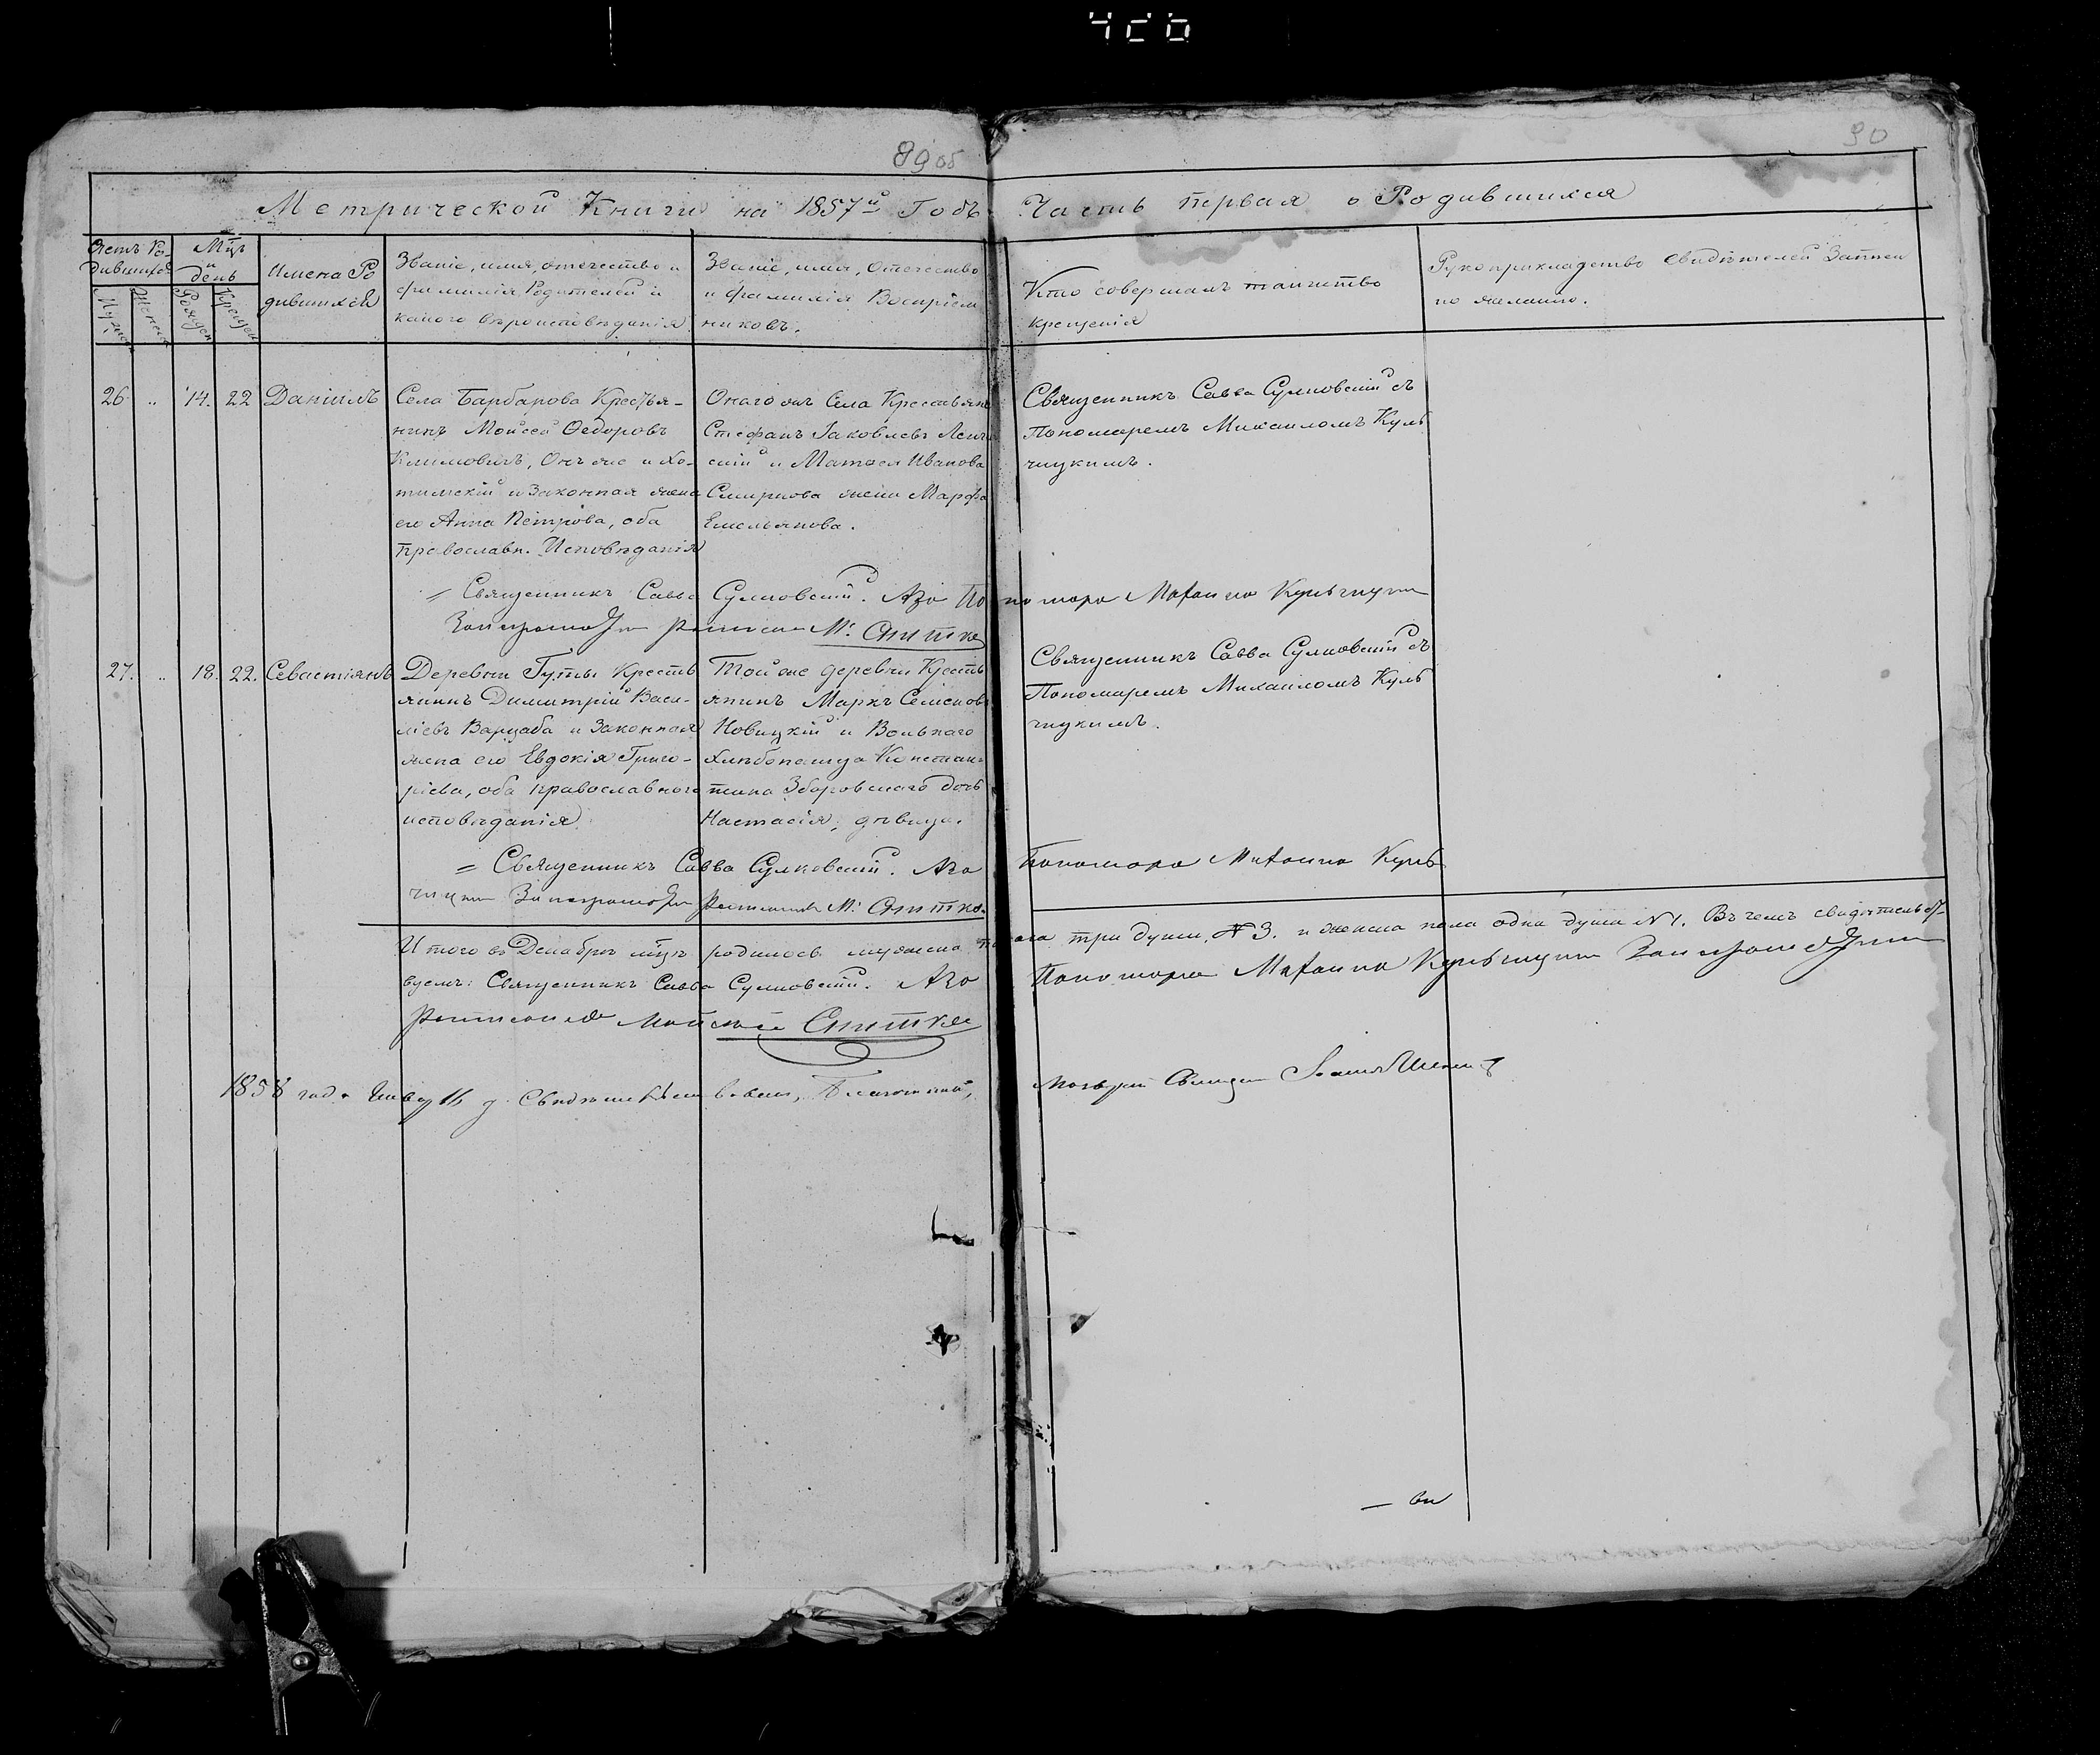 89 об
90
Метрической Книги на 1857й Годъ Часть первая о Родившихся
Счетъ Ро-
дившихся
Мужеск
Женска
Мцъ
и
день
Рожден
Крещен
Имена Ро
дившихся
Званіе, имя, отечество и
фамилія Родителей и
какого вѣроисповѣданія
Званіе, имя, Отечество
и фамилія Воспріем
никовъ.
Кто совершалъ таинство
крещенія
Рукоприкладство Свидѣтелей Записи
по желанію.
26 .. 14. 22 Даніилъ
Села Барбарова Крестья-
нинъ Моисей Федоровъ
Климовичъ, Онъ же и Хо-
тимскій и Законная жена
его Анна Петрова, оба
Православн. Исповѣданія
Онаго жъ Села Крестьянинъ
Стефанъ Іаковлевъ
скій и Матвея Иванова
Смирнова жена Марфа
Емельянова.
Священникъ Савва Сулковскій съ
Пономаремъ Михаиломъ Куль
чицкимъ.
= Священникъ Савва Сулковскій. Азо Пономаро Михаило Кульчицки
М. Снитко
27. .. 18. 22. Севастіянъ
Деревни Гуты Кресть
янинъ Димитрій Васи-
ліевъ Варцаба и Законная
жена его Евдокія Григо-
ріева, оба православного
исповѣданія
Той же деревни Кресть
янинъ Маркъ Семіонов
Новицкій и Вольнаго
хлѣбопашца Констан-
тина Зборовскаго дочь
Настасія, дѣвица.
Священникъ Савва Сулковскій съ
Пономаремъ Михаиломъ Куль
чицкимъ.
= Священникъ Савва Сулковскій. Азо Пономаро Михаило Куль
чицки М: Снитко.
Итого въ Декабрѣ мцѣ родилось мужеска пола три души, № 3. и женска пола одна душа № 1. Въ чемъ свидѣтельст-
вуемъ: Священникъ Савва Сулковскій. Азо Пономаро Михаило Кульчицки
Снитко
1858 года Генвар 16 д. Благочинный,